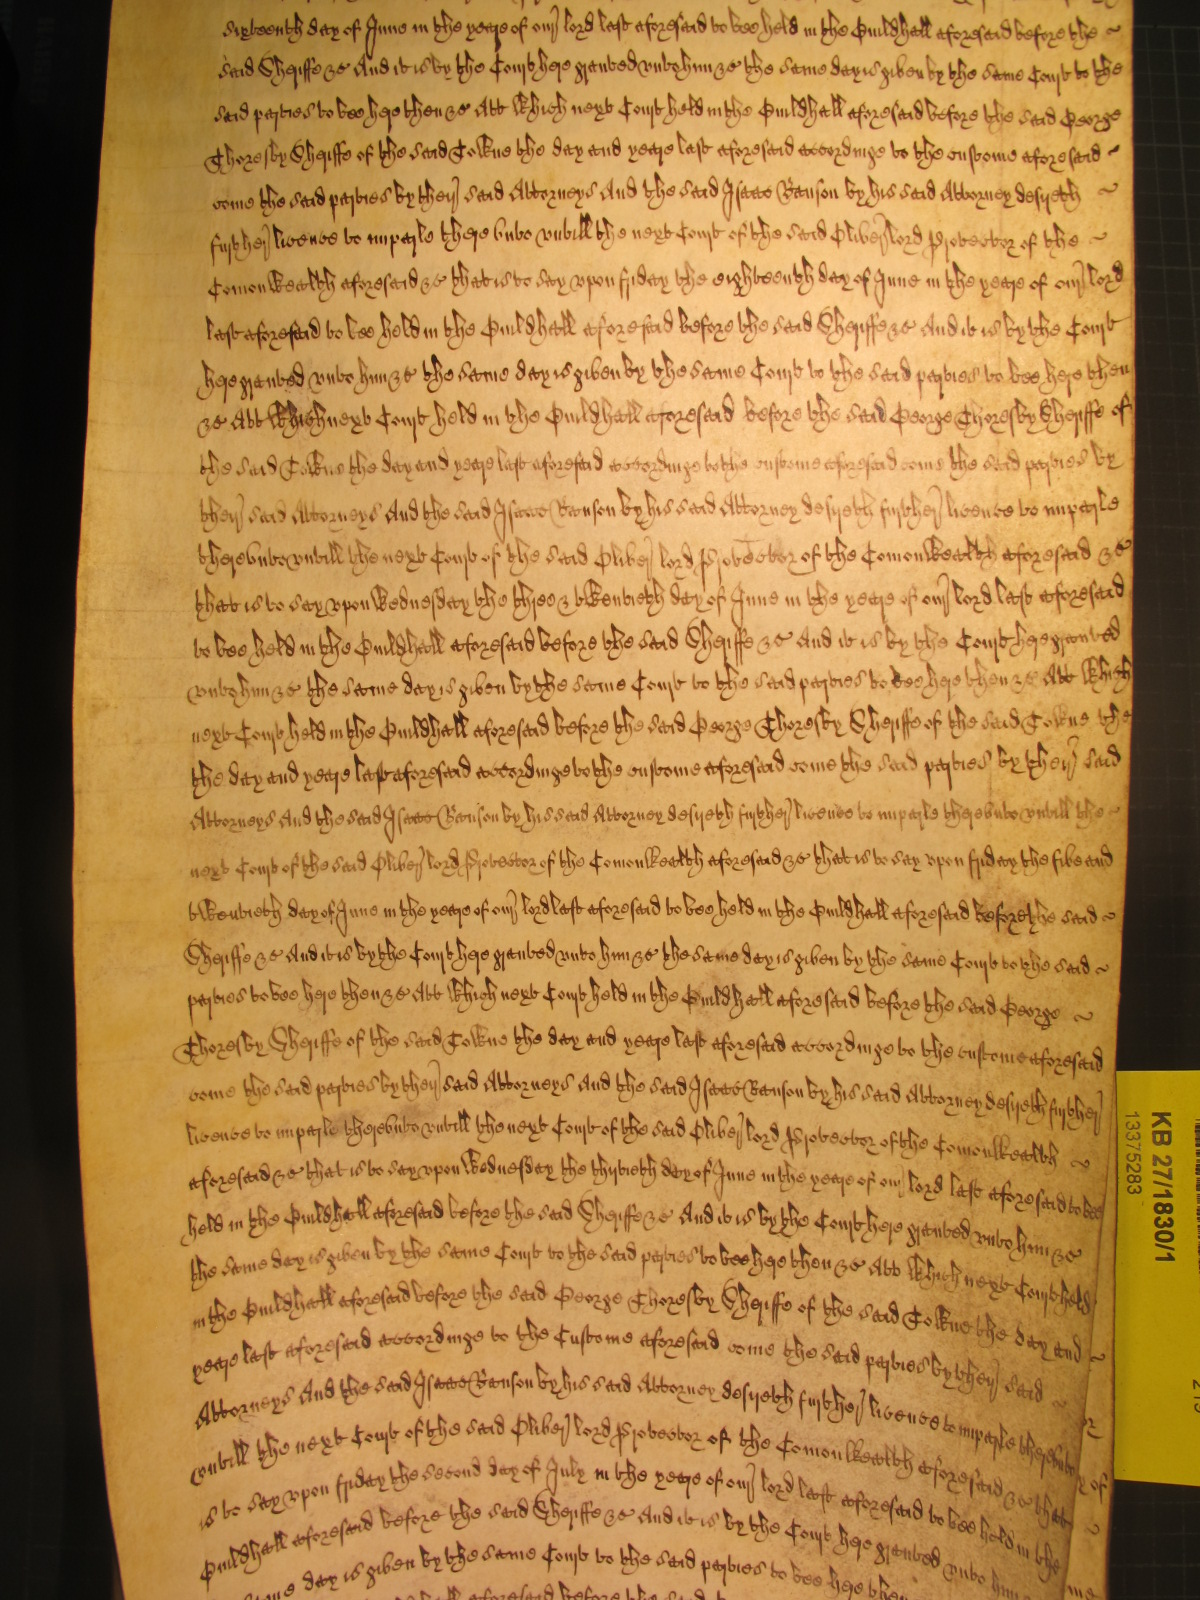 sixteenth day of June in the yeare of our lord last aforesaid to bee held in the Guildhall aforesaid before the
said Sheriffe &c And it is by the Court here graunted unto him &c the same day is given by the same Court to the
said parties to bee here then &c Att which next Court held in the Guildhall aforesaid before the said George
Thoresby Sheriffe of the said Towne the day and yeare last aforesaid accordinge to the custome aforesaid
come the said parties by their said Attorneys And the said Isaac Ranson by his said Attorney desireth
further licence to imparle thereunto untill the next Court of the said Oliver lord Protector of the
Comonwealth aforesaid &c that is to say upon friday the eighteenth day of June in the yeare of our lord
last aforesaid to bee held in the Guildhall aforesaid before the said Sheriffe &c And it is by the Court
here graunted unto him &c the same day is given by the same Court to the said parties to bee here then
&c Att which next Court held in the Guildhall aforesaid before the said George Thoresby Sheriffe of
the said Towne the day and yeare last aforesaid accordinge to the custome aforesaid come the said parties by
their said Attorneys And the said Isaac Ranson by his said Attorney desireth further licence to imparle
thereunto untill the next Court of the said Oliver lord Protector of the Comonwealth aforesaid &c
that is to say upon Wednesday the three & twentieth day of June in the yeare of our lord last aforesaid
to bee held in the Guildhall aforesaid before the said Sheriffe &c And it is by the Court here graunted
unto him &c the same day is given by the same Court to the said parties to bee here then &c Att which
next Court held in the Guildhall aforesaid before the said George Thoresby Sheriffe of the said Towne the
the day and yeare last aforesaid accordinge to the custome aforesaid come the said parties by their said
Attorneys And the said Isaac Ranson by his said Attorney desireth further licence to imparle thereunto untill the
next Court of the said Oliver lord Protector of the Comonwealth aforesaid &c that is to say upon friday the five and
twentieth day of June in the yeare of our lord last aforesaid to bee held in the Guildhall aforesaid before the said
Sheriffe &c And it is by the Court here graunted unto him &c the same day is given by the same Court to the said
parties to bee here then &c Att which next Court held in the Guildhall aforesaid before the said George
Thoresby Sheriffe of the said Towne the day and yeare last aforesaid accordinge to the custome aforesaid
come the said parties by their said Attorneys And the said Isaac Ranson by his said Attorney desireth further
licence to imparle thereunto untill the next Court of the said Oliver lord Protector of the Comonwealth
aforesaid &c that is to say upon Wednesday the thirtieth day of June in the yeare of our lord last aforesaid to bee
held in the Guildhall aforesaid before the said Sheriffe &c And it is by the Court here graunted unto him &c
the same day is given by the same Court to the said parties to bee here then &c Att which next Court held
in the Guildhall aforesaid before the said George Thoresby Sheriffe of the said Towne the day and
yeare last aforesaid accordinge to the Custome aforesaid come the said parties by their said
Attorneys And the said Isaac Ranson by his said Attorney desireth further licence to imparle thereunto
untill the next Court of the said Oliver lord Protector of the Comonwealth aforesaid &c that
is to say upon friday the second day of July in the yeare of our lord last aforesaid to bee held in the
Guildhall aforesaid before the said Sheriffe &c And it is by the Court here graunted unto him
same day is given by the same Court to the said parties to bee here then
aforesaid before the said
KB 27/1830/1
13375283